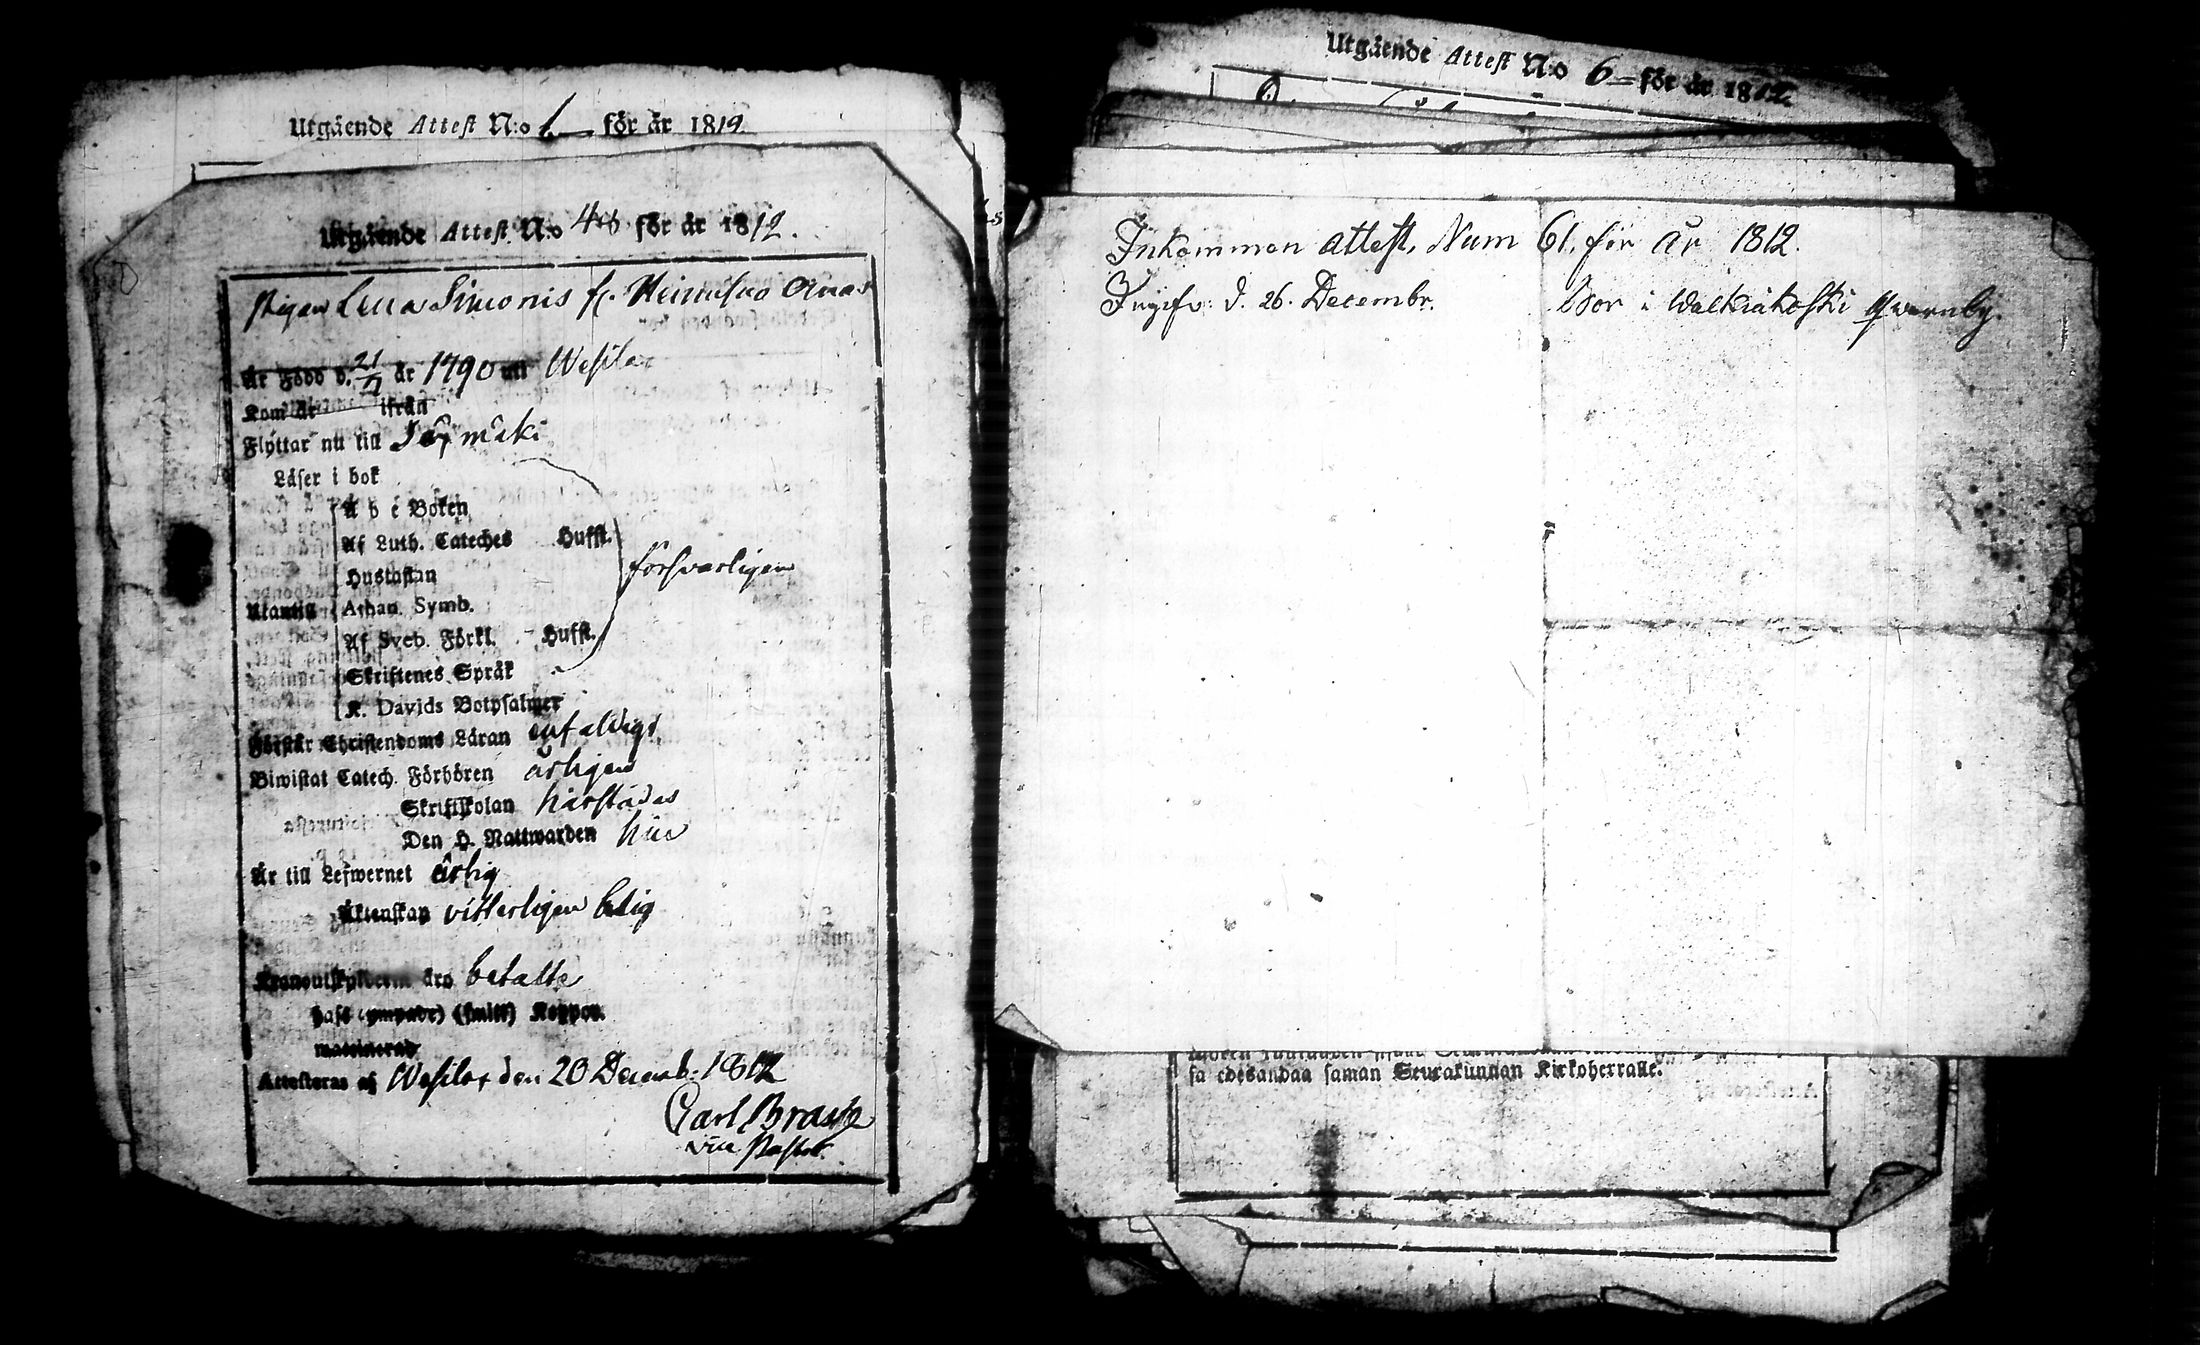 Utgäende Attest N:o 1. för år 1812.
Utgäende Attest N:o för år 1812.
Pigan Lena Simonis fr.
Är Född d. 21/7 år 1790 uti Wesilax
Kom år ifrån
Flyttar nu till
Läser i bok
A b c Boken
Af Luth. Cateches Hufst.
försvarligen
Hustaflan
Utantill Athan. Symb.
Af Sveb. Förkl. Hufst.
Skriftenes Språk
K. Davids Botpsalmer
Förstår Christendoms Läran enfaldigt
Biwistat Catech. Förhören årligen
Skriftskolan härstädes
Den H. Nattwarden här
Är till Lefwernet ärlig
Äktenskap vitterligen ledig
äro betalte
Haft (ympade) (smitt) Koppor.
Attesteras af Wesilax den 20 Decemb. 1812
Carl
vice Pastor.
Utgäende Attest N:o 6 för år 1812.
Inkommen attest, Num 61. för år 1812.
Ingifv: d. 26. Decembr. Bor i Walkiakoski qvarnby.
sa edesandaa saman Seurakunnan Kirkoherralle.